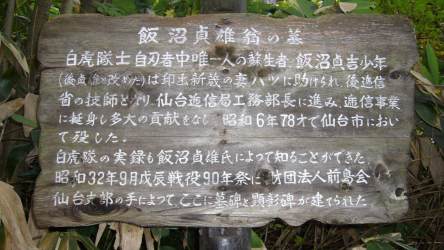 飯沼貞雄翁の墓
白虎隊士自刃者中唯一人の蘇生者 飯沼貞吉少年
(後貞雄と改めた)は印出新蔵の妻ハツに助けられ、後逓信
省の技師となり、仙台逓信局工務部長に進み、逓信事業
に挺身し多大の貢献をなし、昭和6年78才で仙台市におい
て歿した.
白虎隊の実録も飯沼貞雄氏によって知ることができた.
昭和32年9月戊辰戦役90年祭に、財団法人前島会
仙台支部の手によって、ここに墓碑と顕彰碑が建てられた